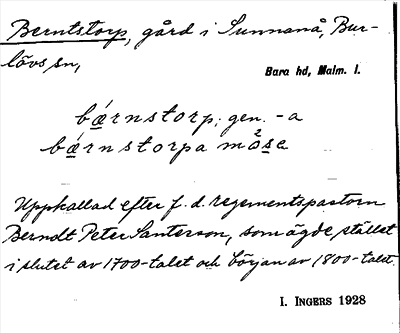 Berntstorp, gård i Sunnanå, Bur-
lövs sn,
Bara hd, Malm. l.
bǽrnstorp; gen. -a
bǽrnstorpa måsa
Uppkallad efter f. d. regementspastorn
Berndt Peter Santesson, som ägde stället
i slutet av 1700-talet och början av 1800-talet.
I. INGERS 1928